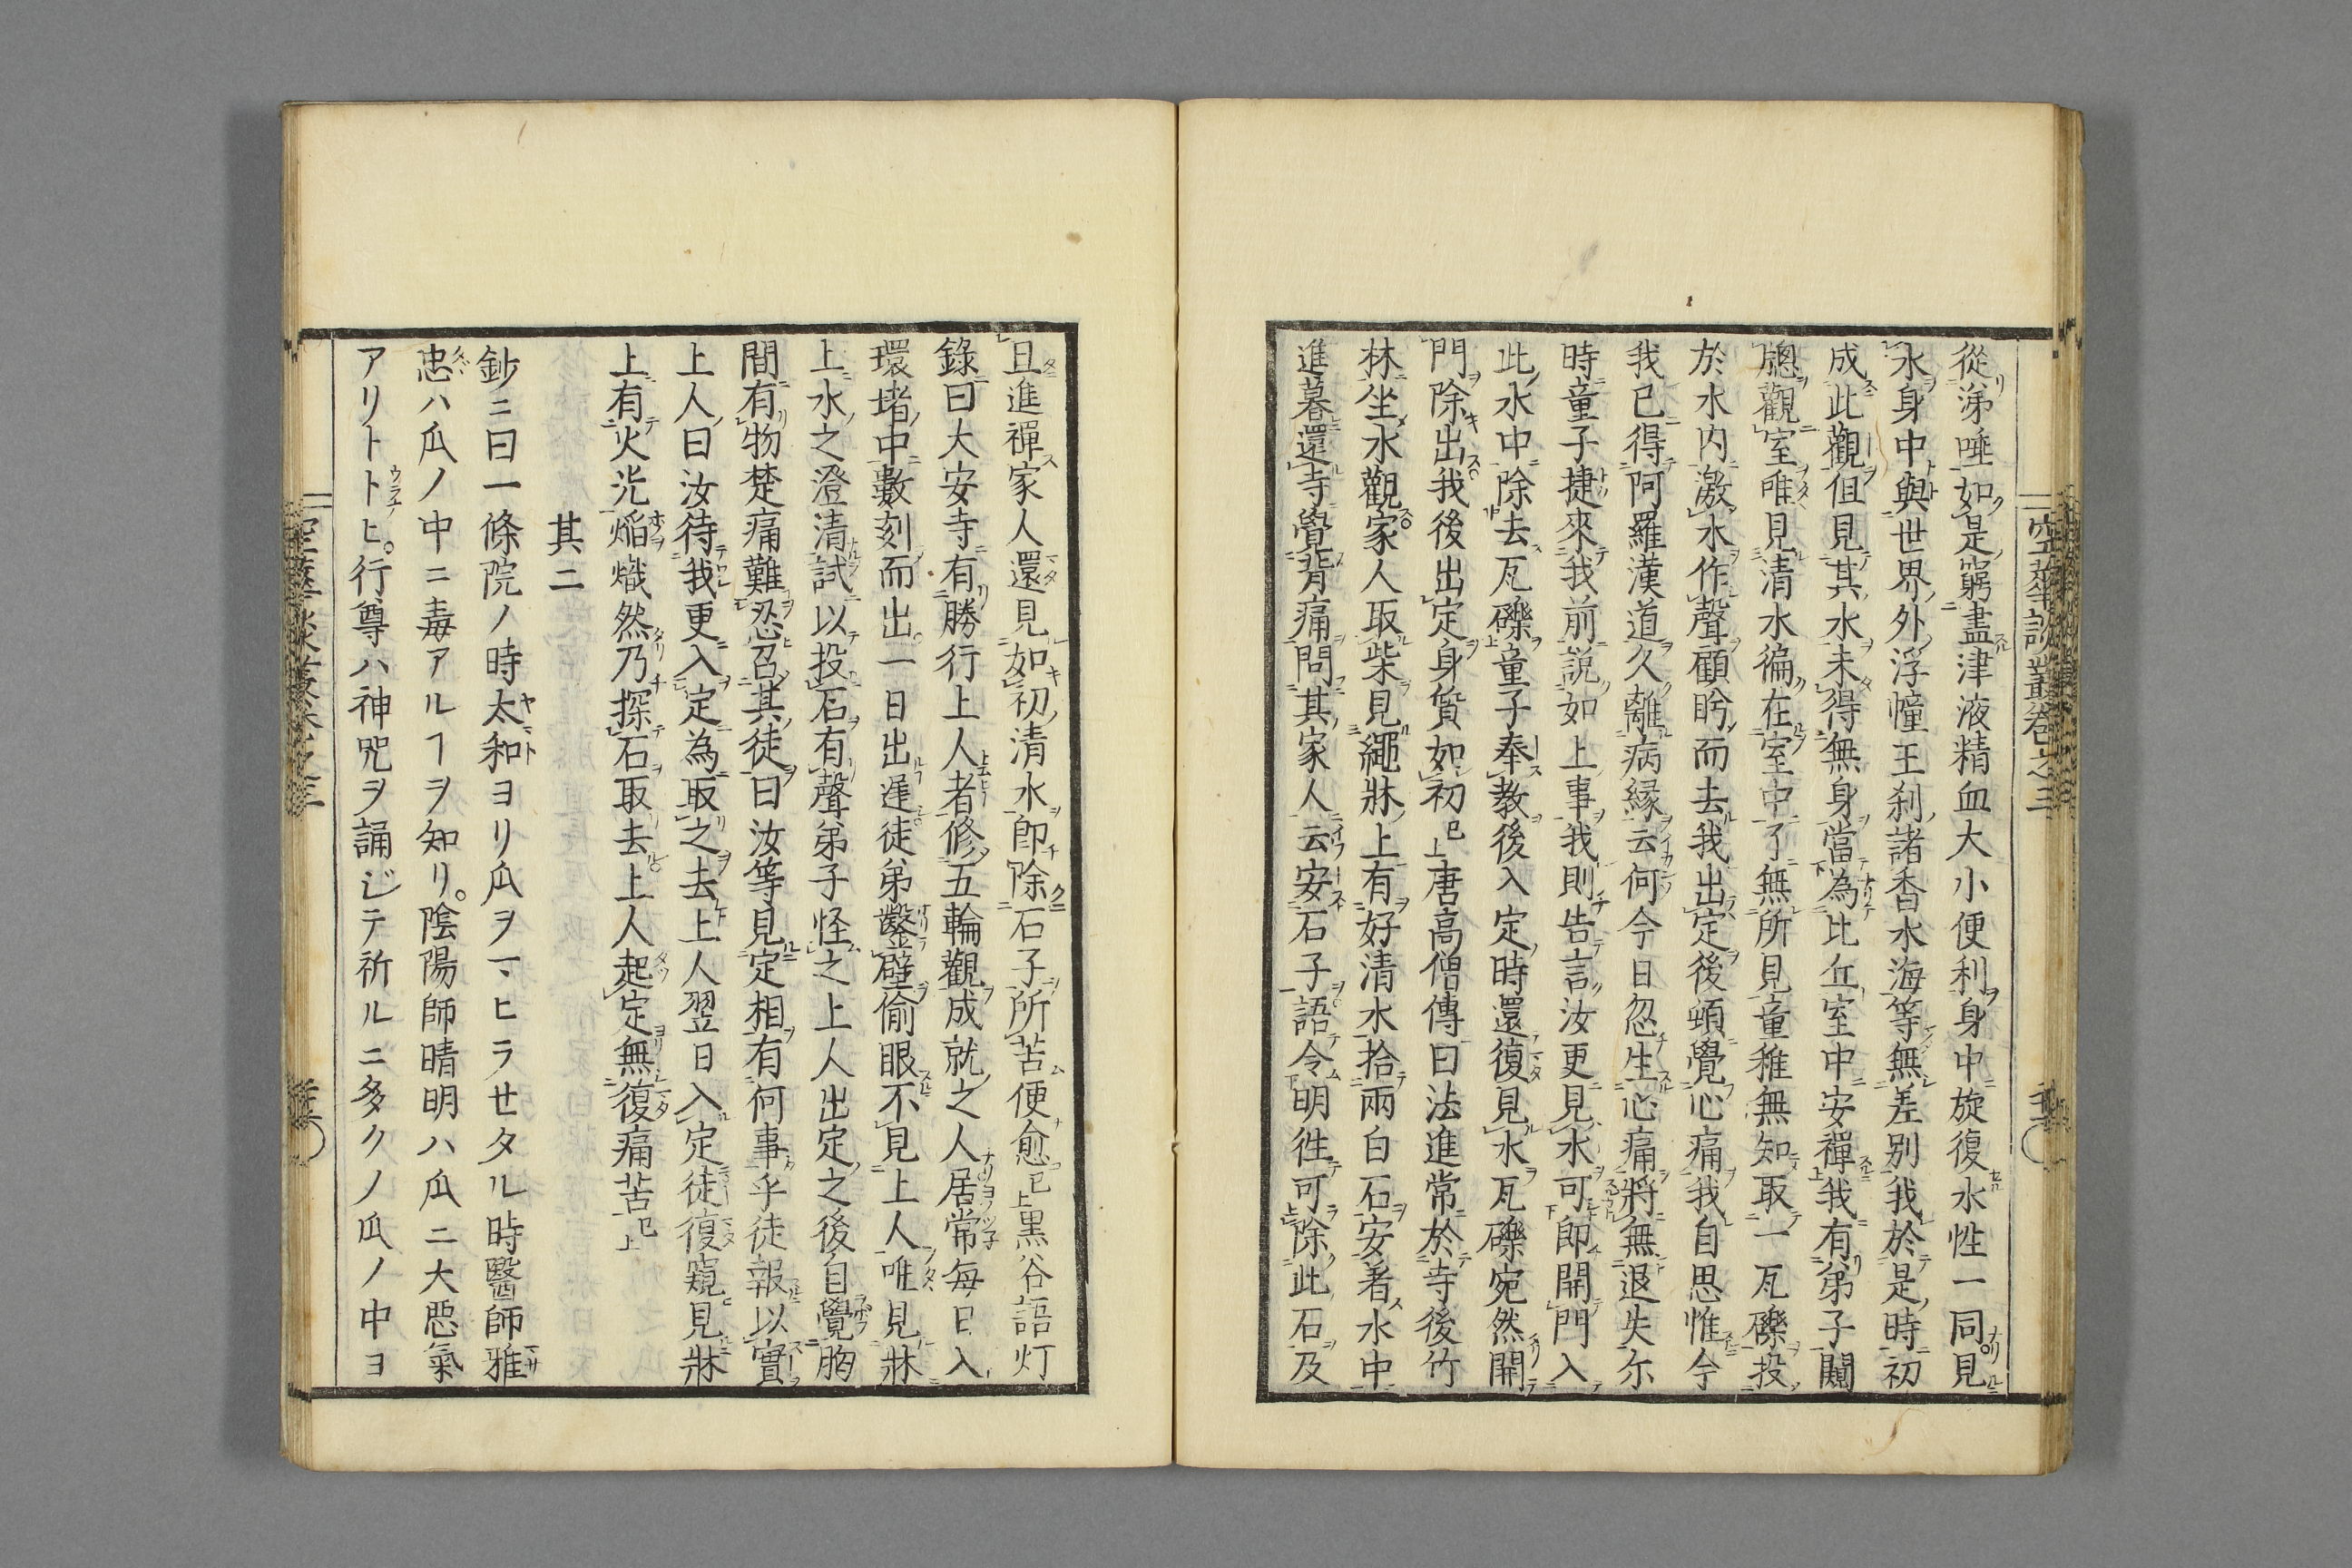 空華談叢卷之三
從涕唾如是窮盡津液精血大小便利身中旋復水性一同見
水身中與世界外浮幢王刹諸香水海等無差別我於是時初
成此觀但見其水未得無身當為比丘室中安禪我有弟子闚
牕觀室唯見清水徧在室中了無所見童稚無知取一瓦礫投
於水內激水作聲顧眄而去我出定後頓覺心痛我自思惟今
我已得阿羅漢道久離病縁云何今日忽生心痛將無退失尓
時童子捷來我前説如上事我則告言汝更見水可即開門入
此水中除去瓦礫童子奉教後入定時還復見水瓦礫宛然開
門除出我後出定身質如初已上唐高僧傳曰法進常於寺後竹
林坐水觀家人取柴見繩牀上有好清水拾兩白石安著水中
進暮還寺覺背痛問其家人云安石子語令明徃可除此石及
旦進禪家人還見如初清水即除石子所苦便愈已上黒谷語灯
錄曰大安寺有勝行上人者修五輪觀成就之人居常每日入
環堵中數刻而出一日出遅徒弟鑿壁偷眼不見上人唯見牀
上水之澄清試以投石有聲弟子怪之上人出定之後自覺胸
間有物楚痛難忍召其徒曰汝等見定相有何事乎徒報以實
上人曰汝待我更入定為取之去上人翌日入定徒復窺見牀
上有火光焔熾然乃探石取去上人起定無復痛苦已上
其二
鈔ニ曰一條院ノ時太和ヨリ瓜ヲマヒラセタル時醫師雅
忠ハ瓜ノ中ニ毒アルヿヲ知リ。陰陽師晴明ハ瓜ニ大惡氣
アリトトヒ。行尊ハ神咒ヲ誦ジテ祈ルニ多クノ瓜ノ中ヨ